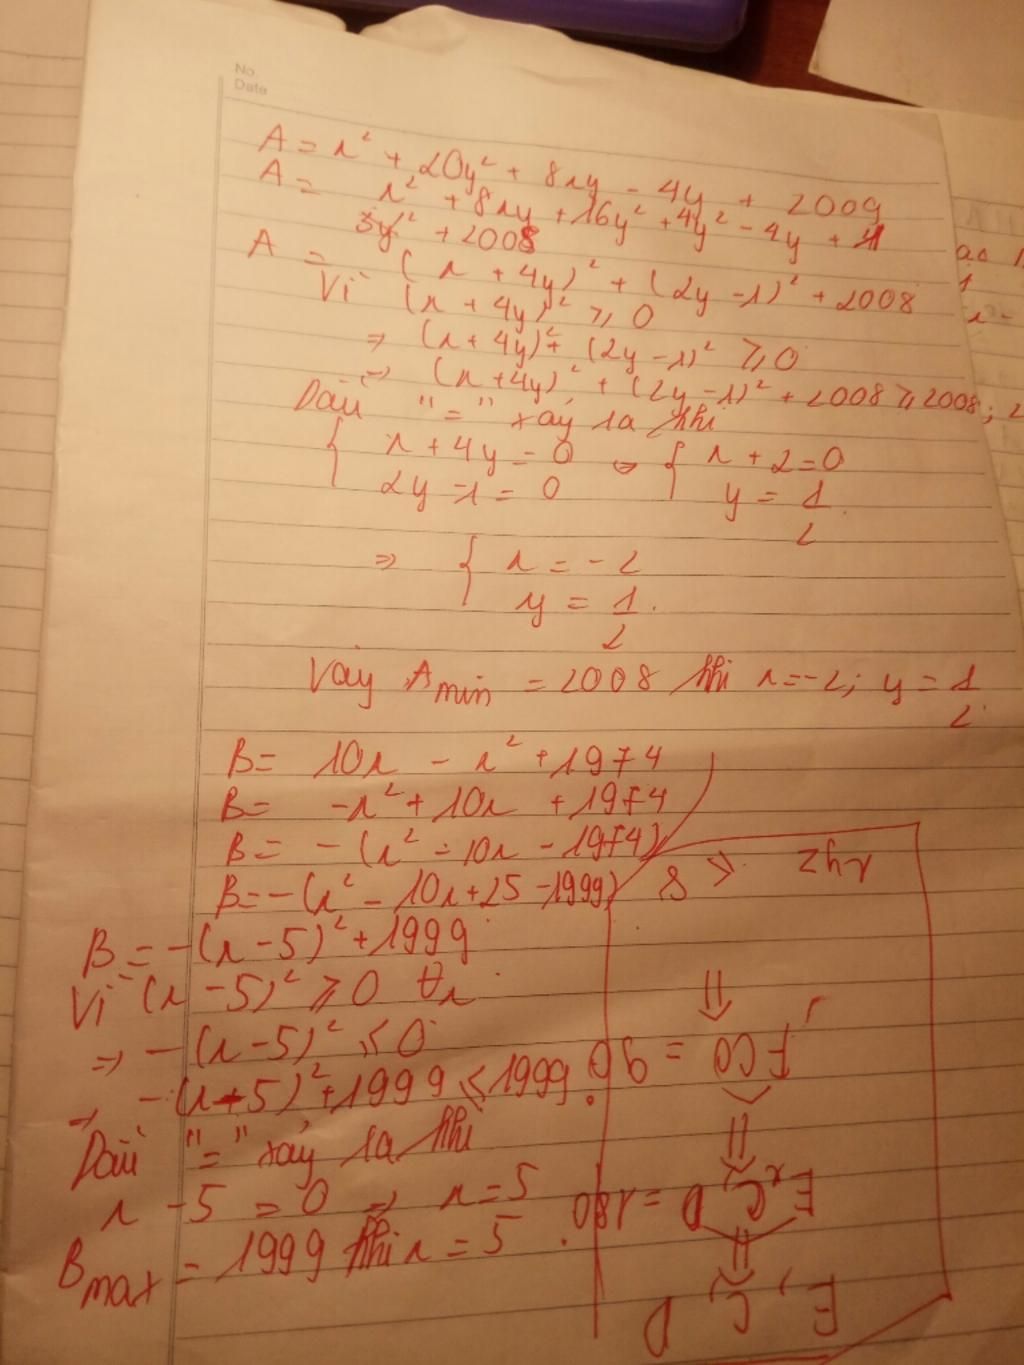 No.
Date
A = x² + 20y² + 8xy - 4y + 2009
A = x² + 8xy + 16y² + 4y² - 4y + 1
+ 2008
A = (x + 4y)² + (2y - 1)² + 2008
Vì (x + 4y)² ≥ 0
⇒ (x + 4y)² + (2y - 1)² ≥ 0
⇒ (x + 4y)² + (2y - 1)² + 2008 ≥ 2008;
Dấu "=" xảy ra khi
{ x + 4y = 0 ⇔ { x + 2 = 0
2y - 1 = 0 y = 1/2
⇒ { x = -2
y = 1/2
Vậy Amin = 2008 khi x = -2; y = 1/2
B = 10x - x² + 1974
B = -x² + 10x + 1974
B = -(x² - 10x - 1974)
B = -(x² - 10x + 25 - 1999)
B = -(x - 5)² + 1999
Vì (x - 5)² ≥ 0 ∀x
⇒ -(x - 5)² ≤ 0
⇒ -(x - 5)² + 1999 ≤ 1999
Dấu "=" xảy ra khi
x - 5 = 0 ⇒ x = 5
Bmax = 1999 khi x = 5
E, C, D
⇑
ECD = 180°
⇑
FCO = 90°
⇓
xyz ≤ 8